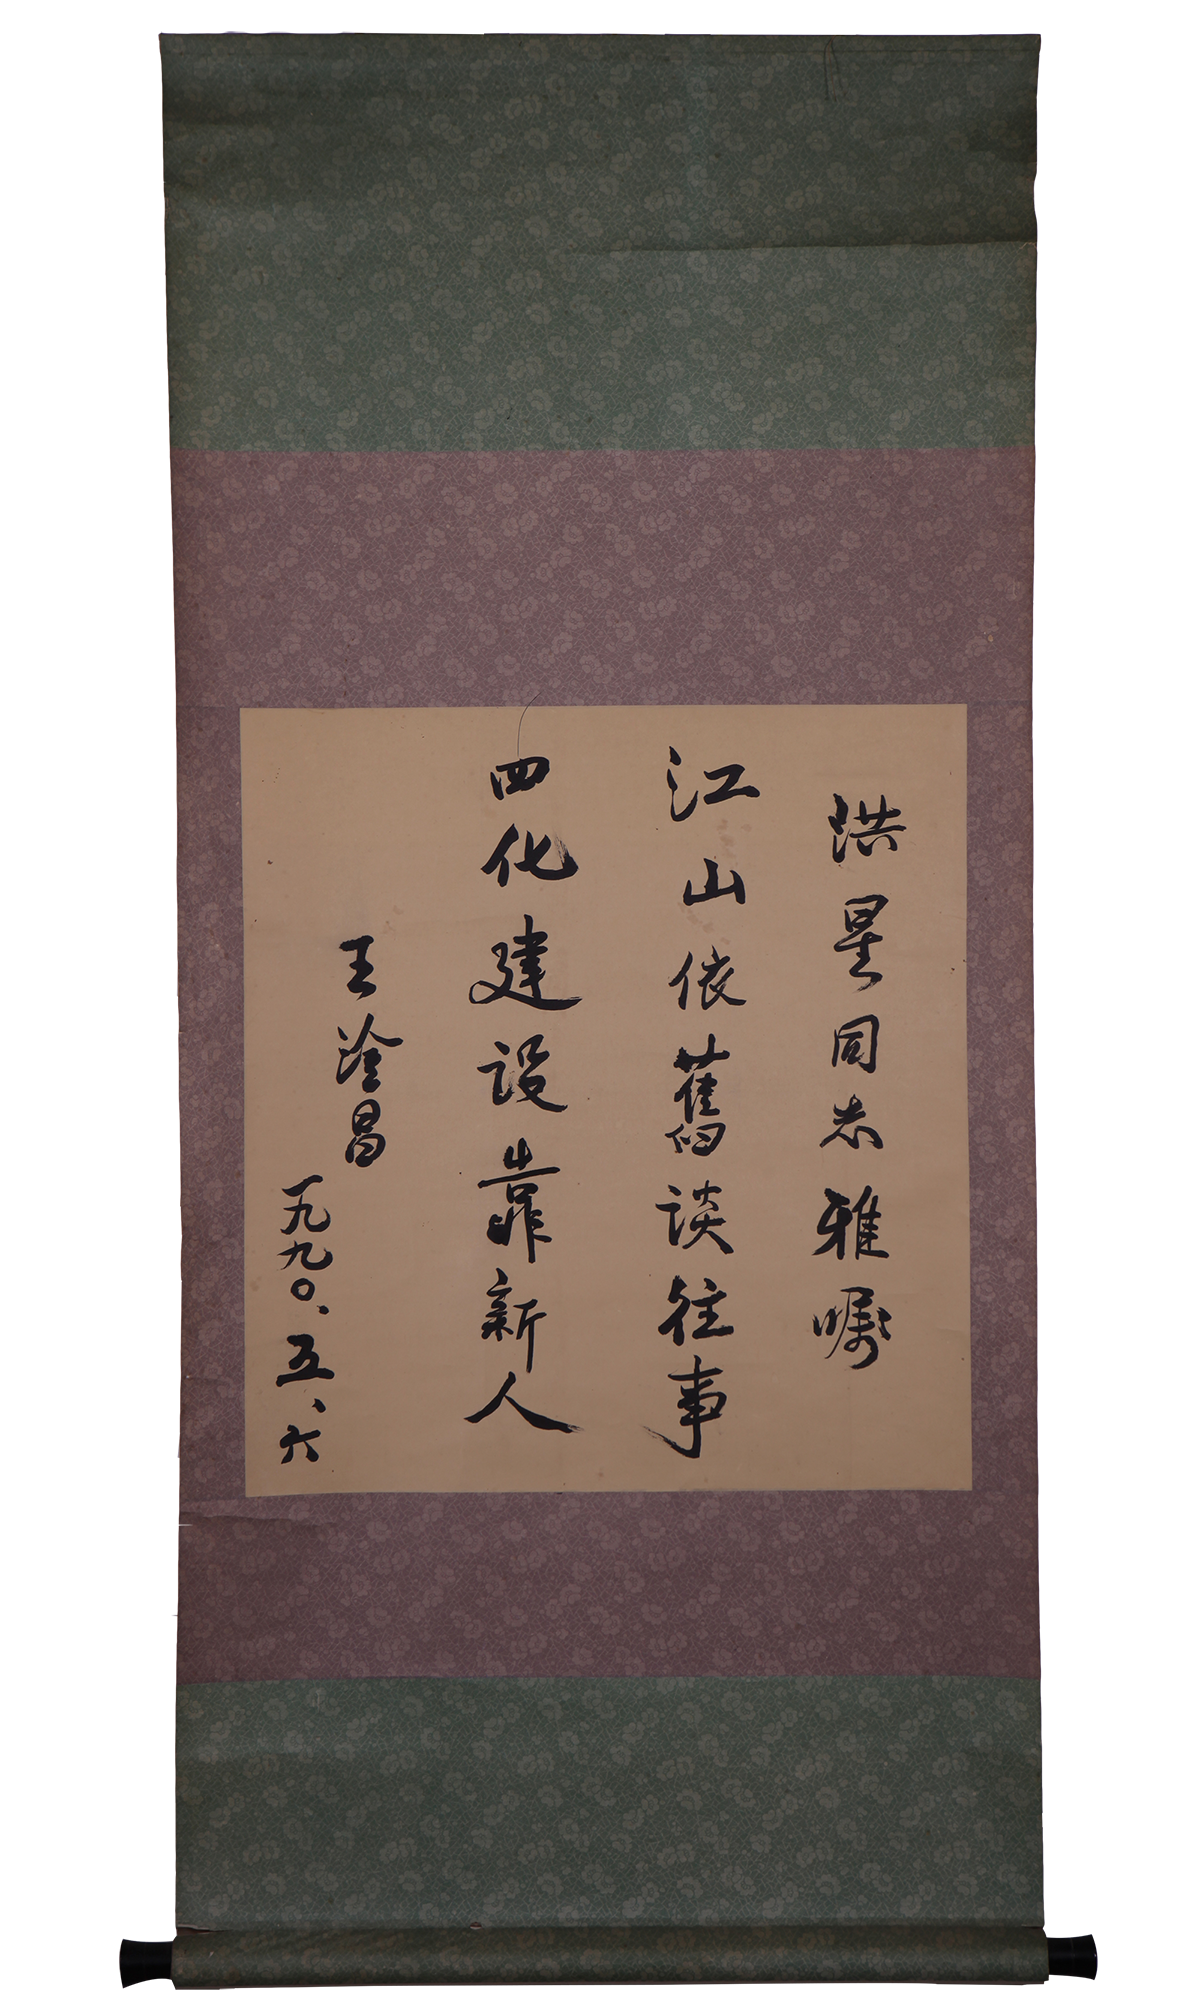 洪星同志雅嘱
江山依舊谈往事
四化建设靠新人
王淦昌
一九九〇、五、六